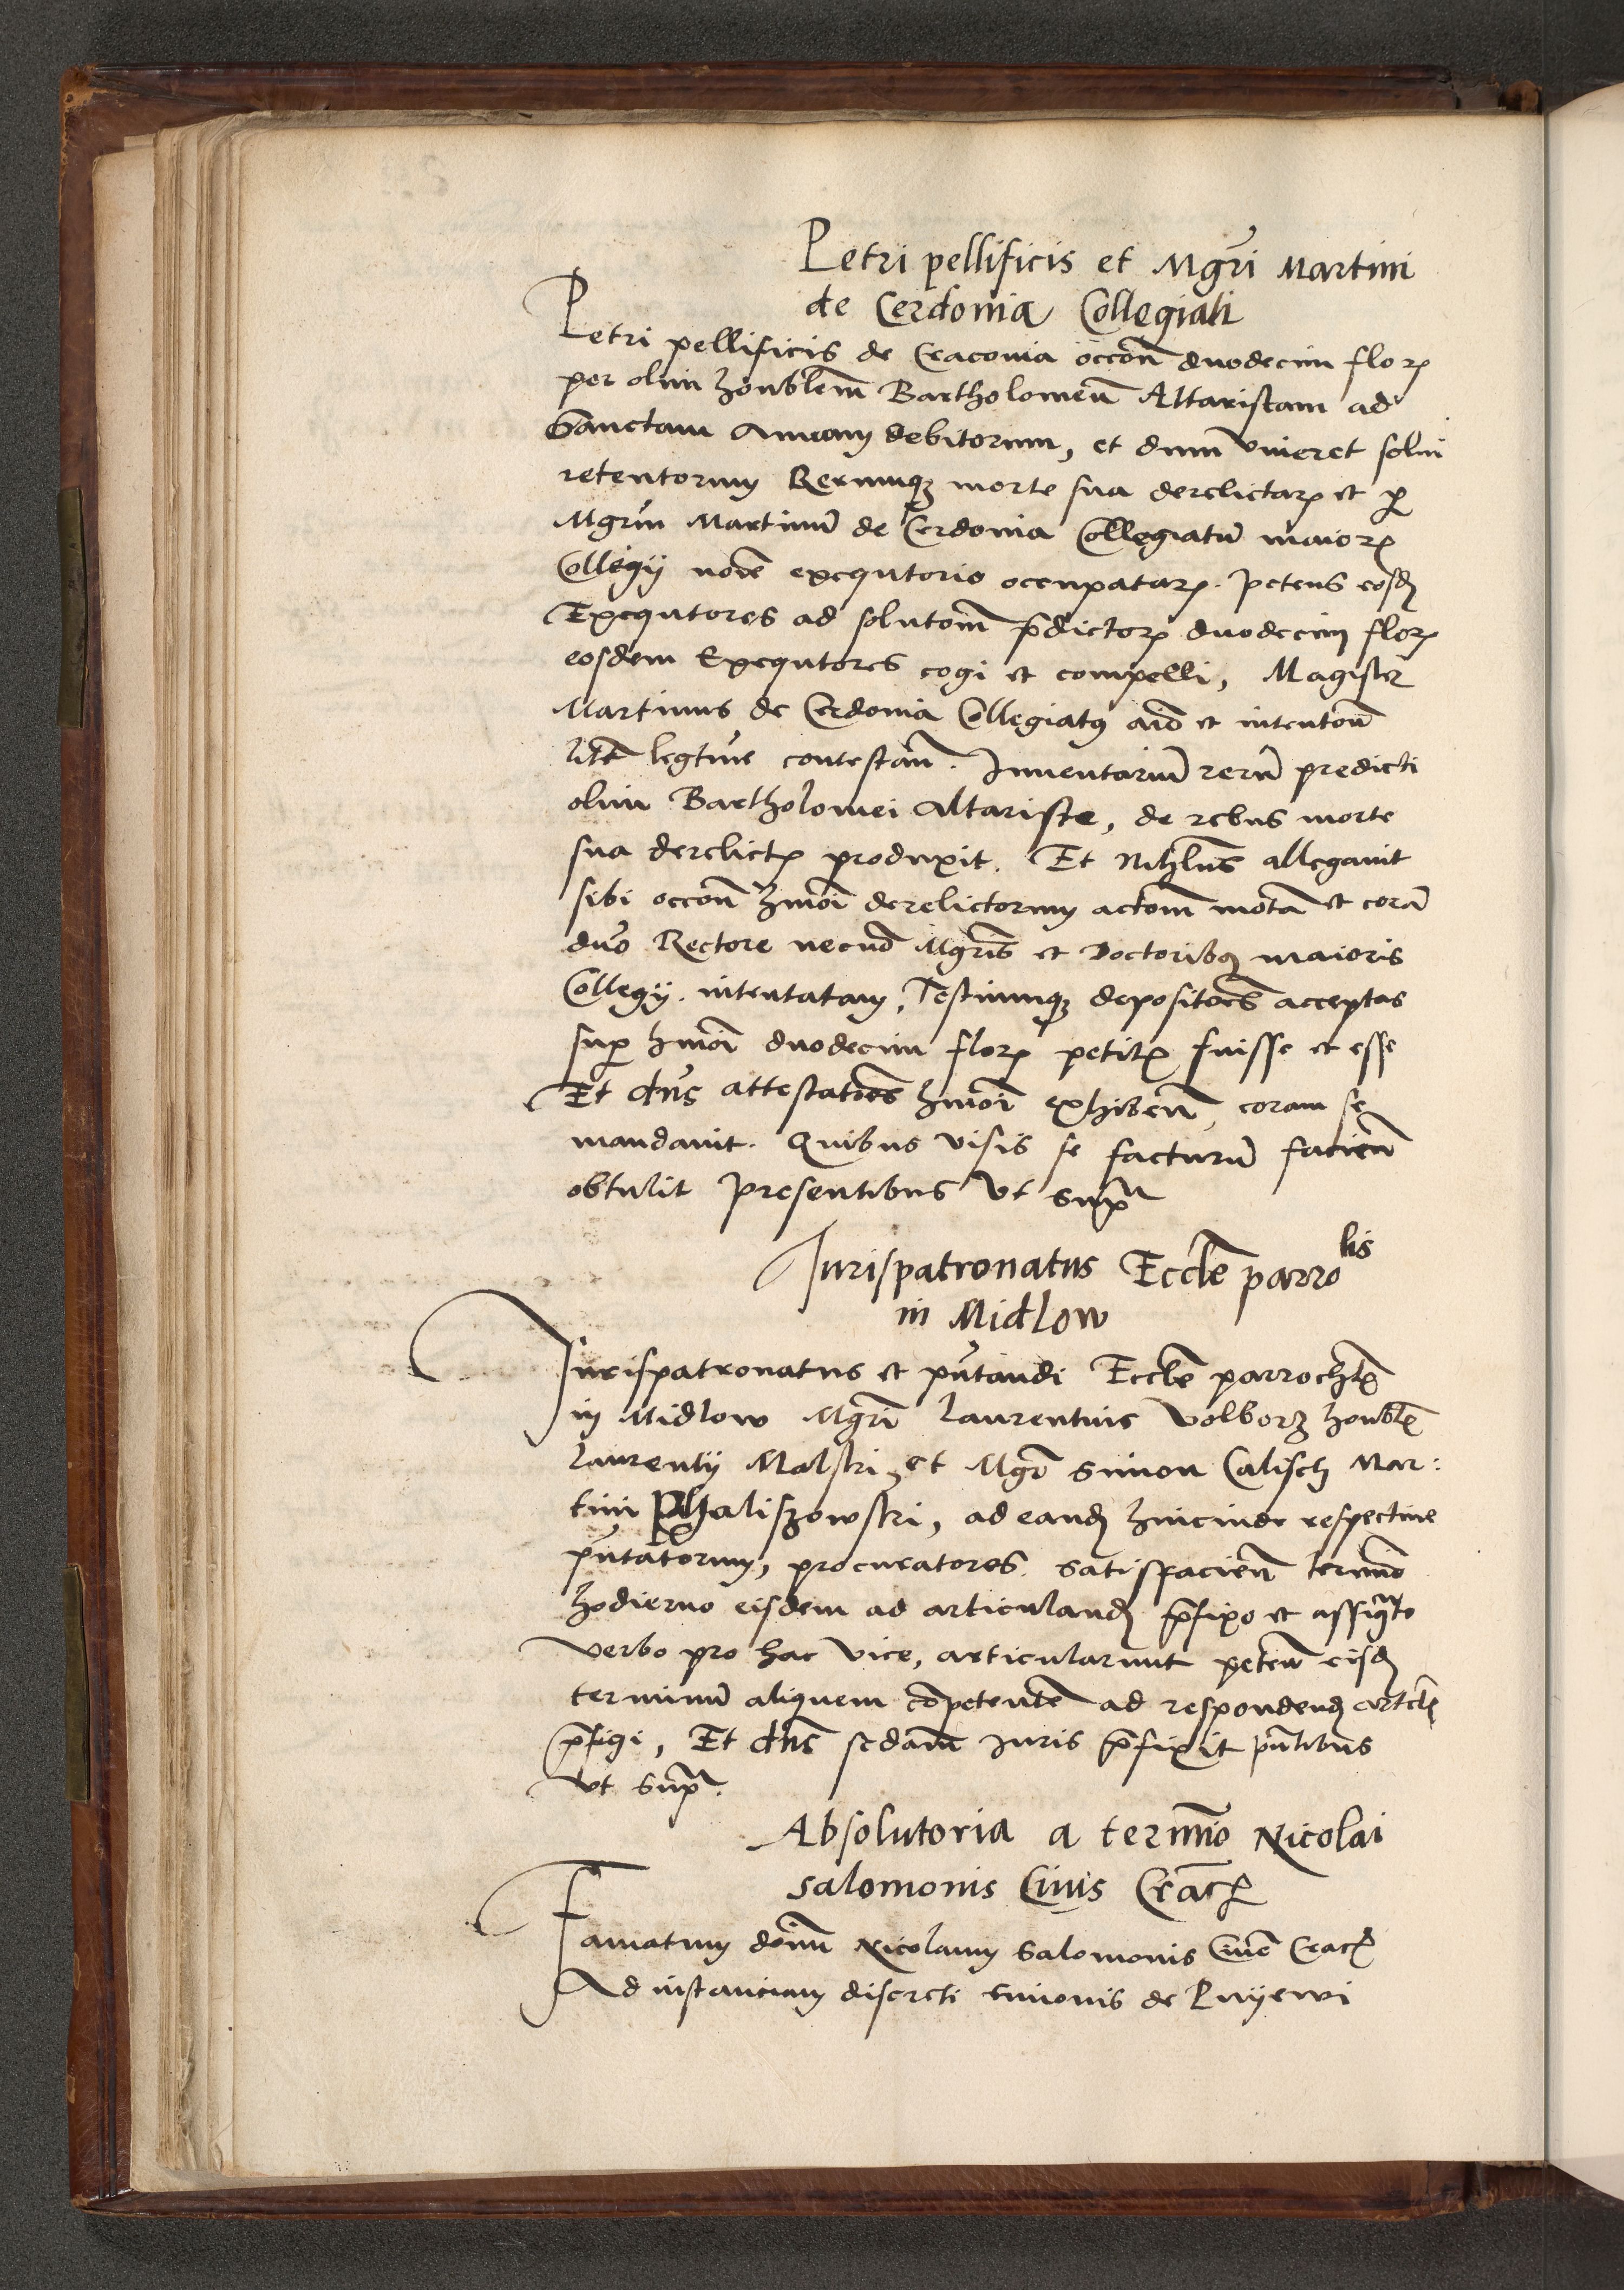 Petri pellificis et Mgrĩ Martini
de Cerdonia Collegiati
Petri pellificis de Cracovia occõn duodecim floꝝ
per olim honblem̃ Bartholomeũ Altaristam ad
Sanctam Annam debitorum, et dum viveret solvi
retentorum Rerumqʒ morte sua derelictaꝝ et ꝑ
Mgrum Martinũ de Cerdonia Collegiatũ maioꝝ
Collegij noĩe exequtorio occupataꝝ. petens eosdꝫ
Exequtores ad solutoĩm p̃dictoꝝ duodecim floꝝ
eosdem Exequtores cogi et compelli, Magister
Martinus de Cerdonia Collegiatꝰ aĩo et intentoñ
litẽ legtĩme contestañ. Inventariũ rerũ predicti
olim Bartholomei altariste, de rebus morte
sua derelictꝭ produxit. Et Nihlus̃ allegavit
sibi occoñ hmõi derelictorum actoĩm motã et corã
dno Rectore necnõ Mgris̃ et Doctoribꝰ maioris
Collegij. intentatam, Testiumqʒ depositoẽs acceptas
suꝑ hmõi duodecim floꝝ petitꝭ fuisse et esse
Et dñs attestatoẽs hmõi exhibeñ, coram se
mandavit. Quibus visis se facturũ facieñ
obtulit presentibus vt supᵃ
Jurispatronatus Eccle͂ parroˡⁱˢ
in Midlow
Jurispatronatus et pñtandi Eccle͂ parrochlꝭ
in Midlow Mgrĩ Laurentius Volborz honblꝭ
Laurentij Malski, et Mgr̃ Simon Calisch Mar:
tini Phaliszowski, ad eandꝫ hincinde respective
pñtatorum, procuratores. satisfacieñ termĩo
hodierno eisdem ad articulandꝫ p̃fixo et assigᵃto
verbo pro hac vice, articularunt peteñ eisdꝫ
terminũ aliquem cõpetentẽ ad respondendꝫ artclꝭ
p̃figi, Et dñs sedam̃ Juris p̃fixit pñtibus
vt supᵃ.
Absolutoria a termĩo Nicolai
salomonis Civis Cracꝭ
Famatum domĩnũ Nicolaum Salomonis Civẽ Cracꝭ
Ad instanciam discreti Simonis de